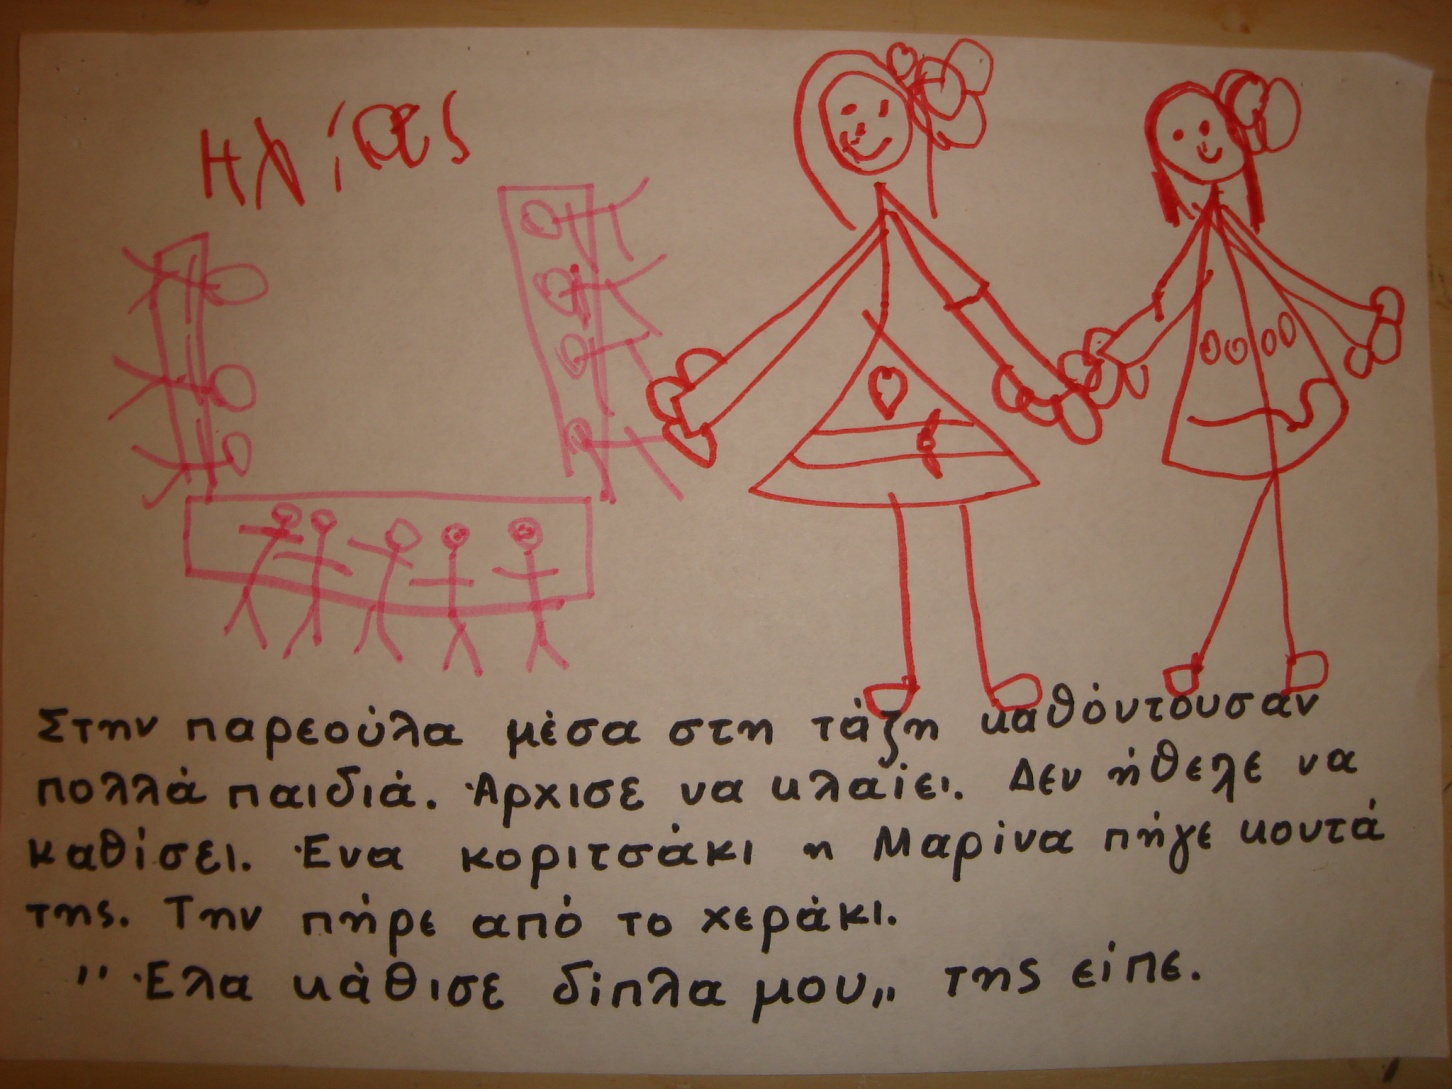 Ηλίας
Στην παρεούλα μέσα στη τάξη καθόντουσαν
πολλά παιδιά. Άρχισε να κλαίει. Δεν ήθελε να
καθίσει. Ένα κοριτσάκι η Μαρίνα πήγε κοντά
της. Την πήρε από το χεράκι.
"Έλα κάθισε δίπλα μου„ της είπε.